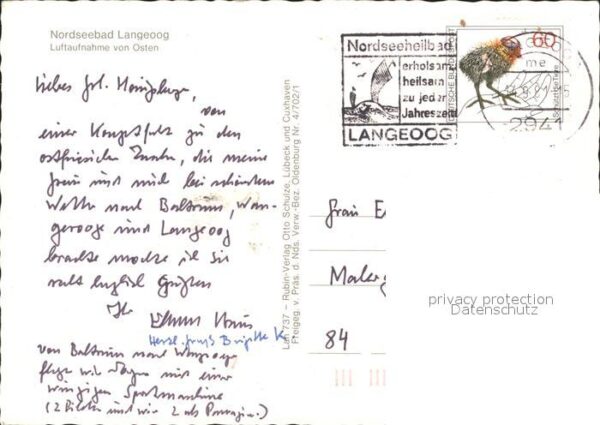 Nordseebad Langeoog
Luftaufnahme von Osten
Liebes Frl.
von
einer Kreuzfahrt zu den
ostfriesischen Inseln, die meine
Frau und mich bei schönstem
Wetter nach Baltrum, Wan-
gerooge und Langeoog
brachte möchte ich Sie
recht herzlich grüßen
Ihr
Herzl. Gruß Brigitte K
von Baltrum nach Wangerooge
flogen wir sogar mit einer
winzigen Sportmaschine
(2 Piloten und wir 2 als Passagiere.)
Lan 737 – Rubin-Verlag Otto Schulze, Lübeck und Cuxhaven
Freigeg. v. Präs. d. Nds. Verw.-Bez. Oldenburg Nr. 4/702/1
Nordseeheilbad
erholsam
heilsam
zu jeder
Jahreszeit
LANGEOOG
60
DEUTSCHE BUNDESPOST
2941
Frau E
Maler
84
privacy protection
Datenschutz